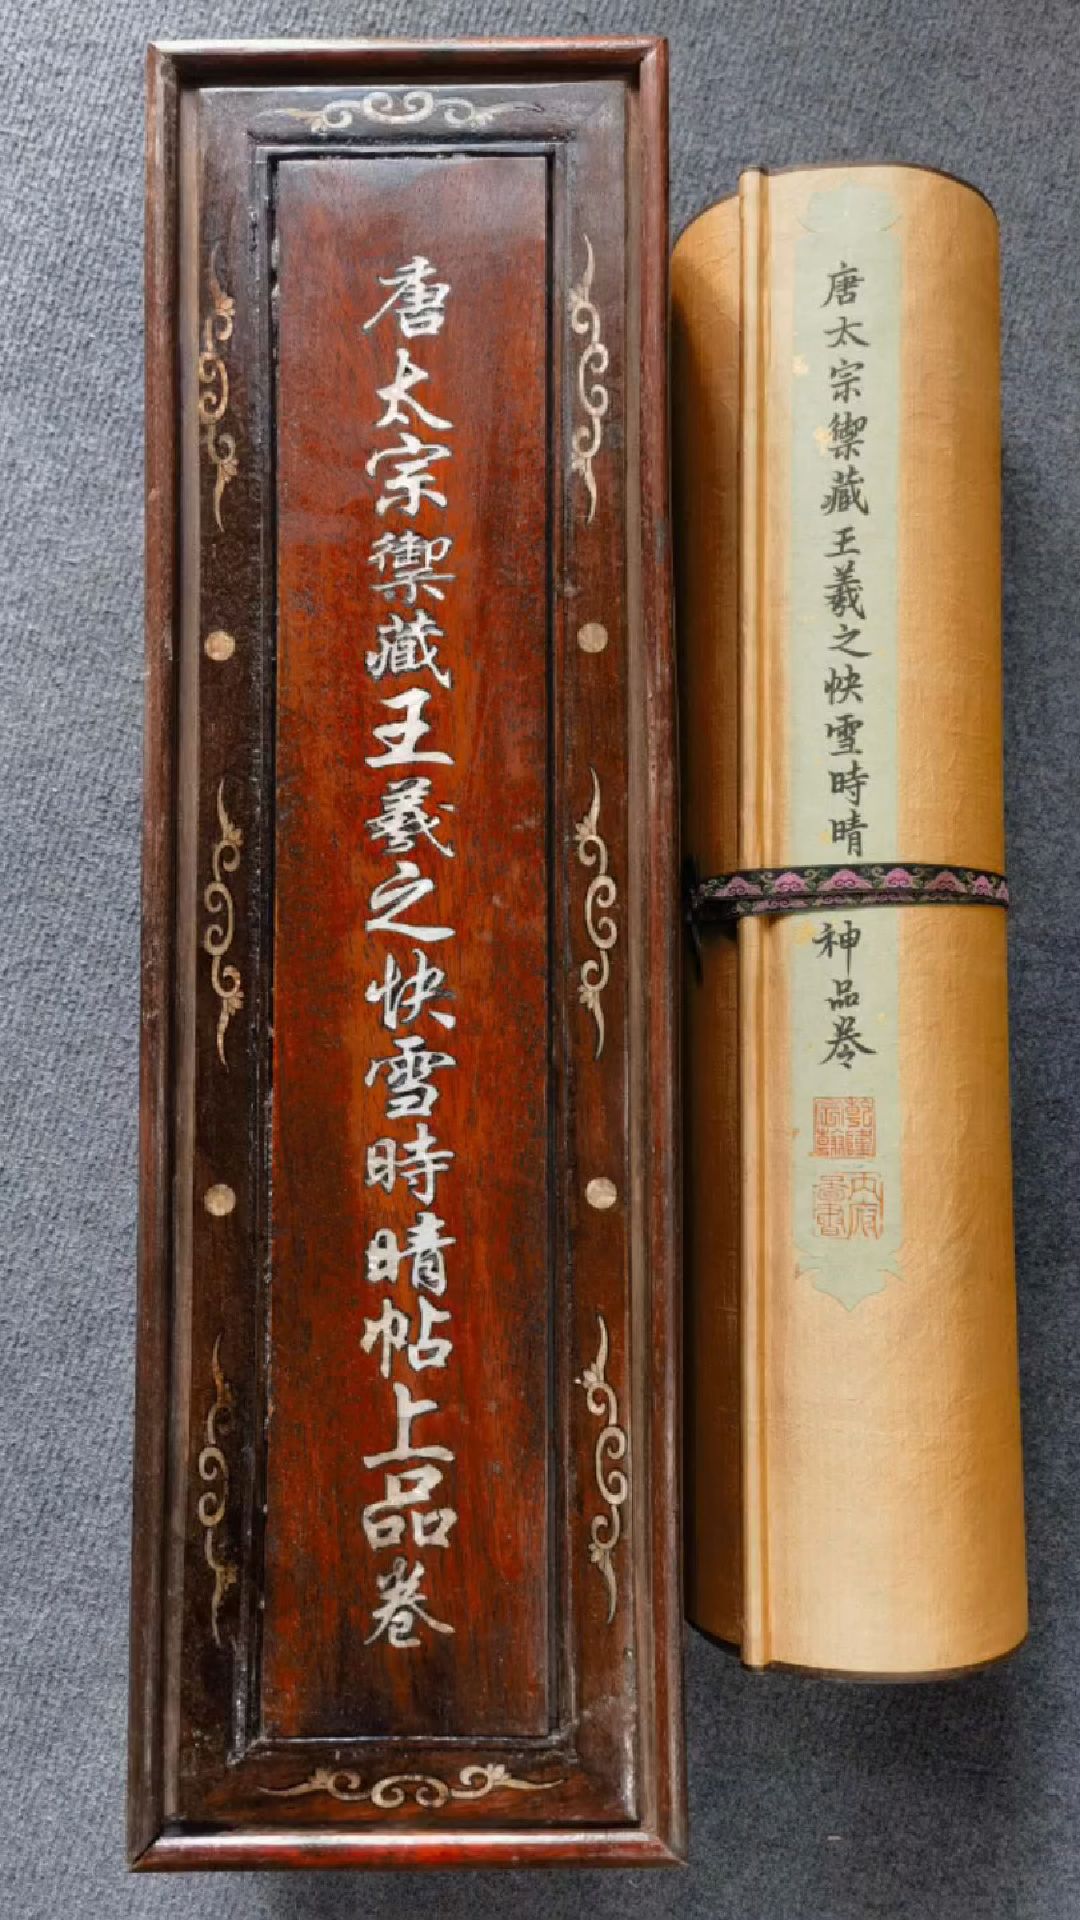 唐太宗禦藏王羲之快雪時晴帖上品卷
唐太宗禦藏王羲之快雪時晴
神品卷
乾隆宸翰
內府圖書